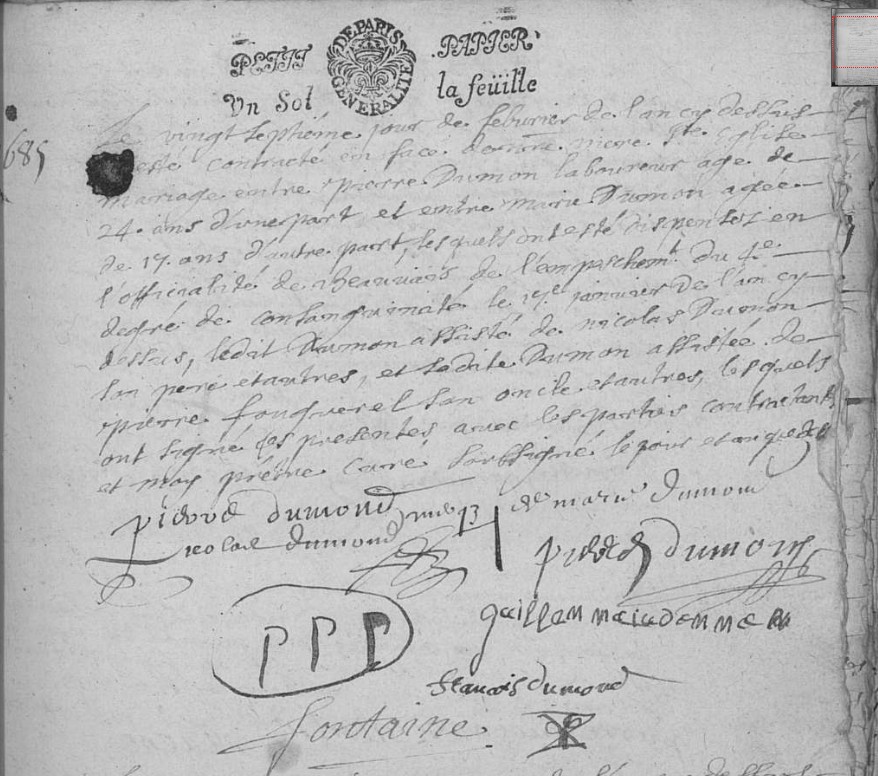 PETIT PAPIER
DE PARIS GENERALITE
Vn Sol la feüille
685
Le vingt septiéme jour de feburier de l'an cy dessus
esté contracté en face de nre mere Ste Eglise
mariage entre pierre Dumon laboureur age de
24. ans d'une part et entre marie Dumon agée
de 17. ans d'autre part, lesquels ont esté dispensez en
l'officialité de Beauvais de l'empeschemt du 4e
degré de consanguinité le janvier de l'an cy
dessus, ledit Dumon assisté de nicolas Dumon
son pere et autres, et ladite Dumon assistée de
pierre fouquerel son oncle et autres, lesquels
ont signé ces presentes avec les parties contractants
et moy prétre curé soussigné le jour et an que
pierre dumond de marie dumond
nicolas dumond
dumont
PPP
francois dumond
fontaine